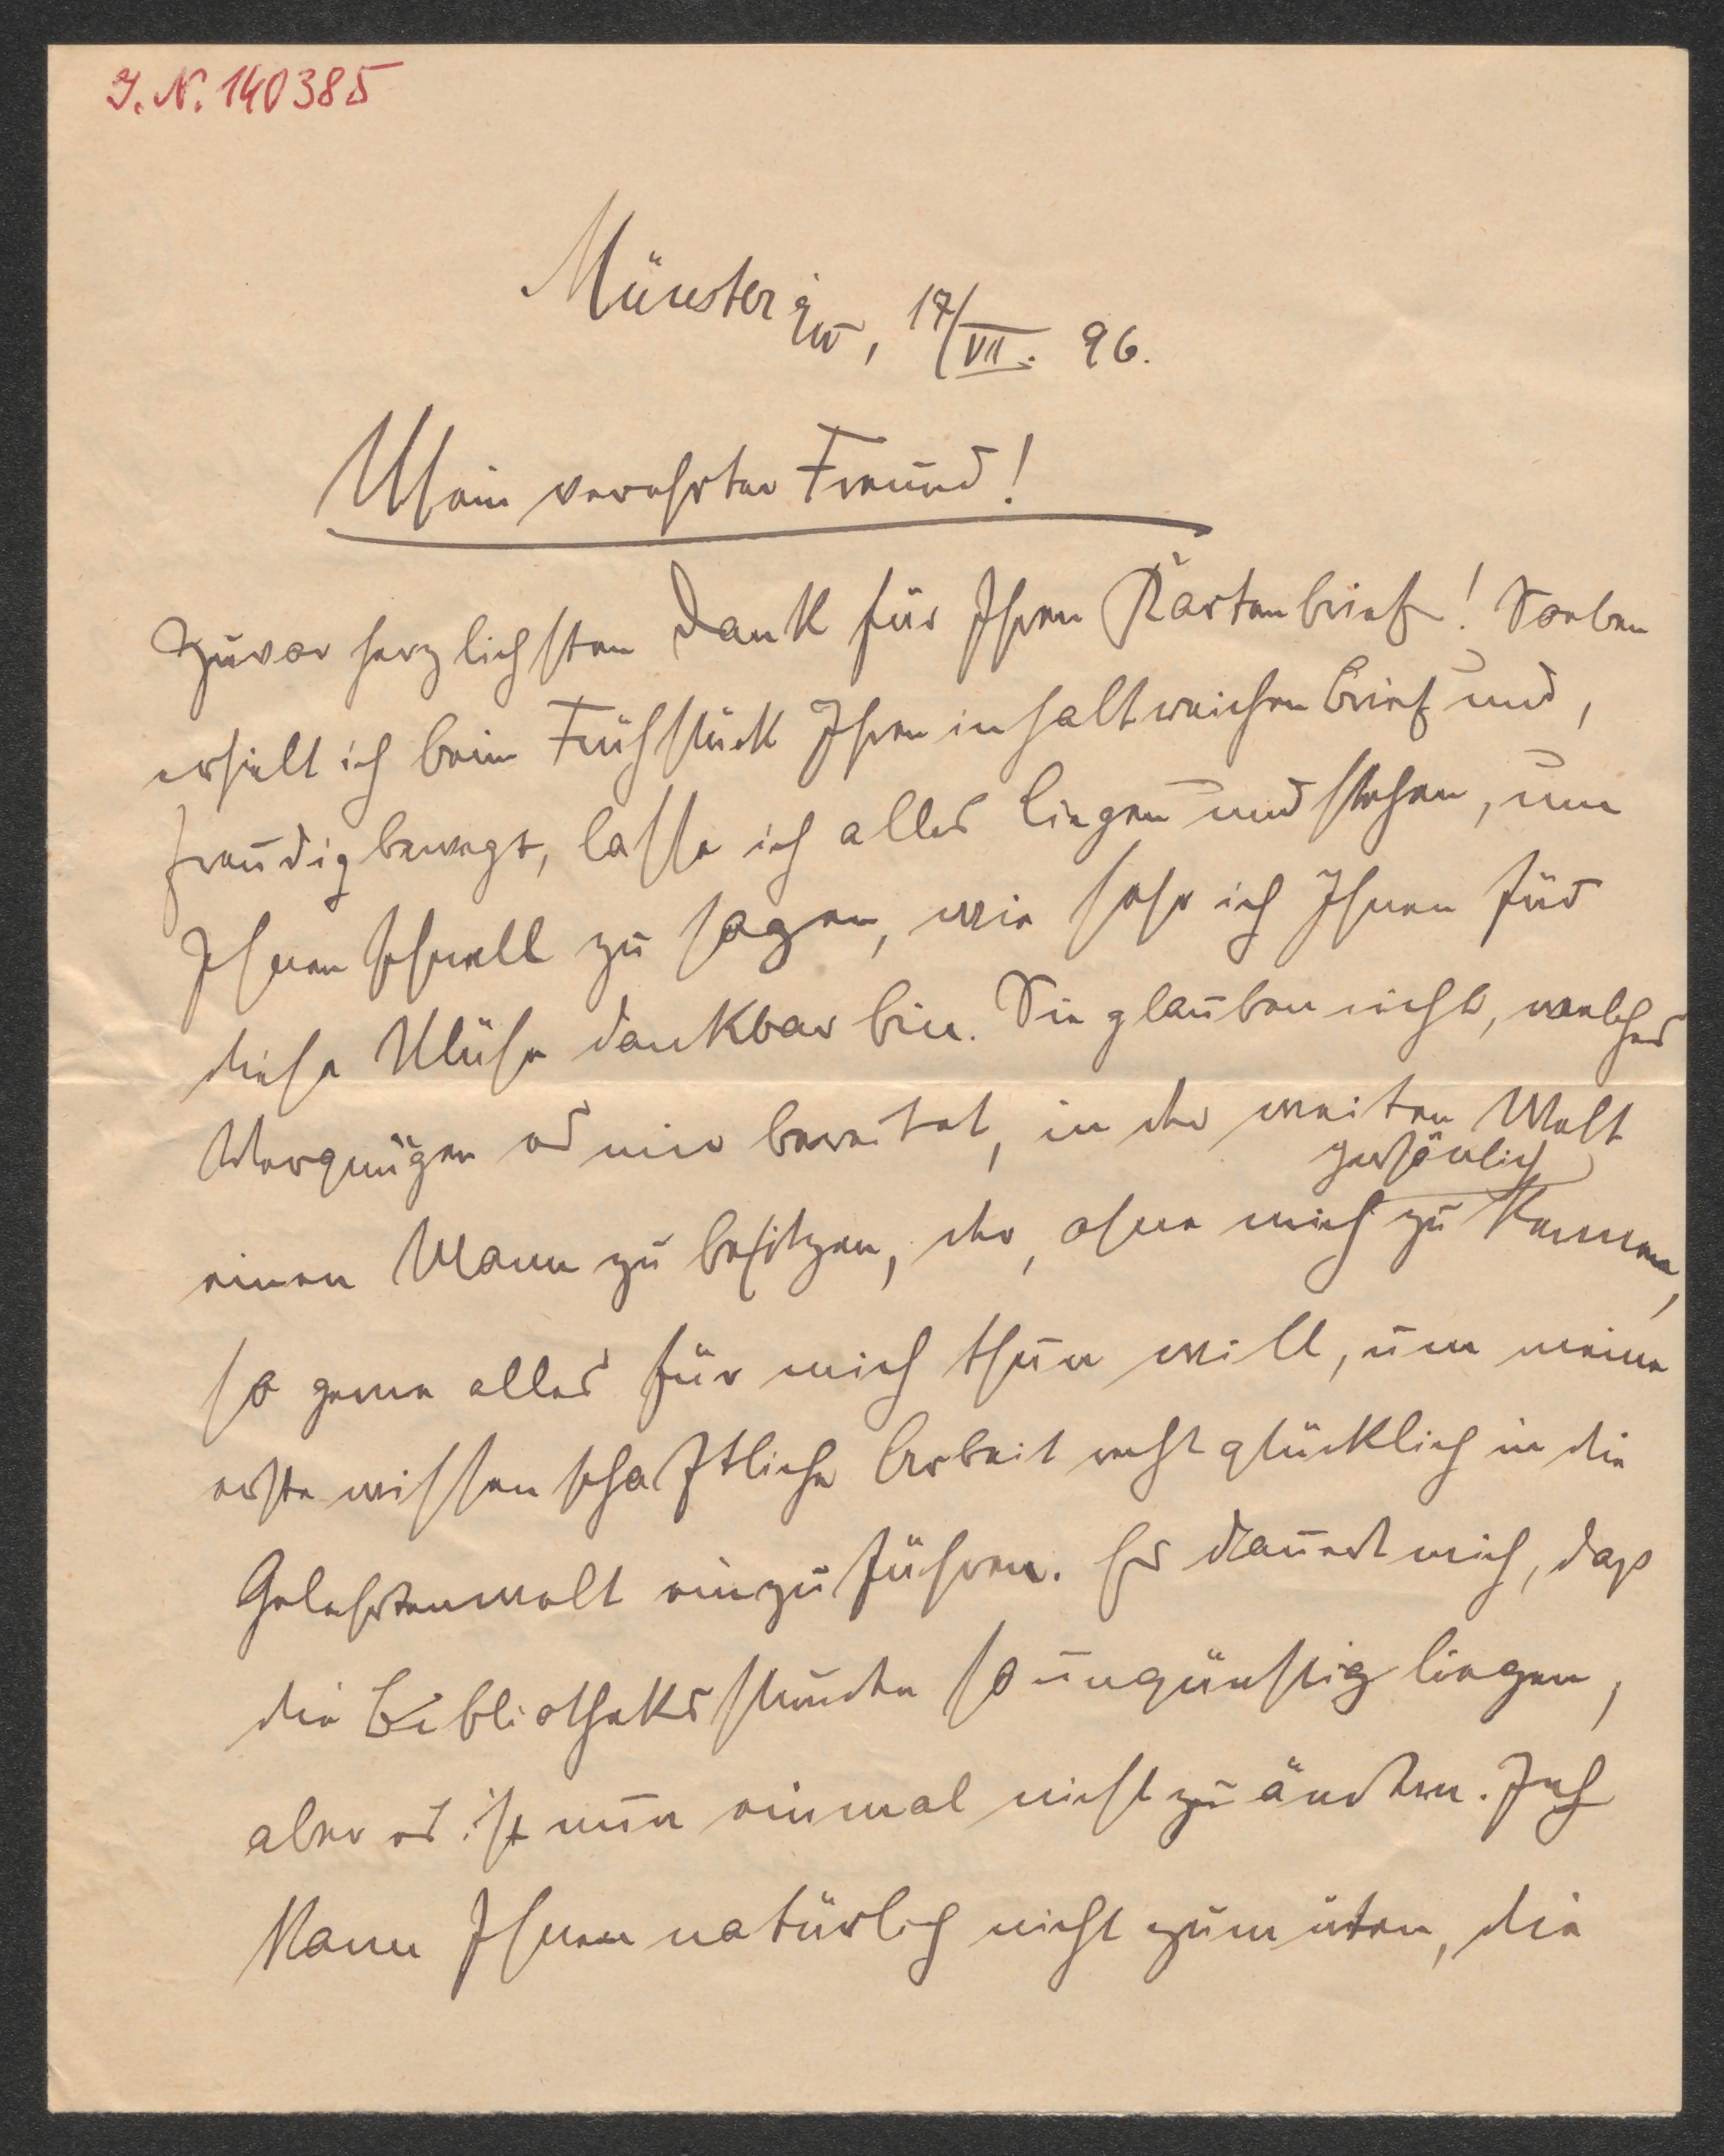 J. N. 140385
Münster i/W, 17/VII. 96.
Mein verehrter Freund!
Zuvor herzlichsten Dank für Ihren Kartenbrief! Soeben
erhielt ich beim Frühstück Ihren inhaltreichen Brief und,
freudig bewegt, lasse ich alles liegen und stehen, um
Ihnen schnell zu sagen, wie sehr ich Ihnen für
diese Mühe dankbar bin. Sie glauben nicht, welches
Vergnügen es mir bereitet, in der weiten Welt
persönlich
einen Mann zu besitzen, der, ohne mich zu kennen,
so gerne alles für mich thun will, um meine
erste wissenschaftliche Arbeit recht glücklich in die
Gelehrtenwelt einzuführen. Es dauert mich, dass
die Bibliotheksstunden so ungünstig liegen,
aber es ist nun einmal nicht zu ändern. Ich
kann Ihnen natürlich nicht zumuten, die